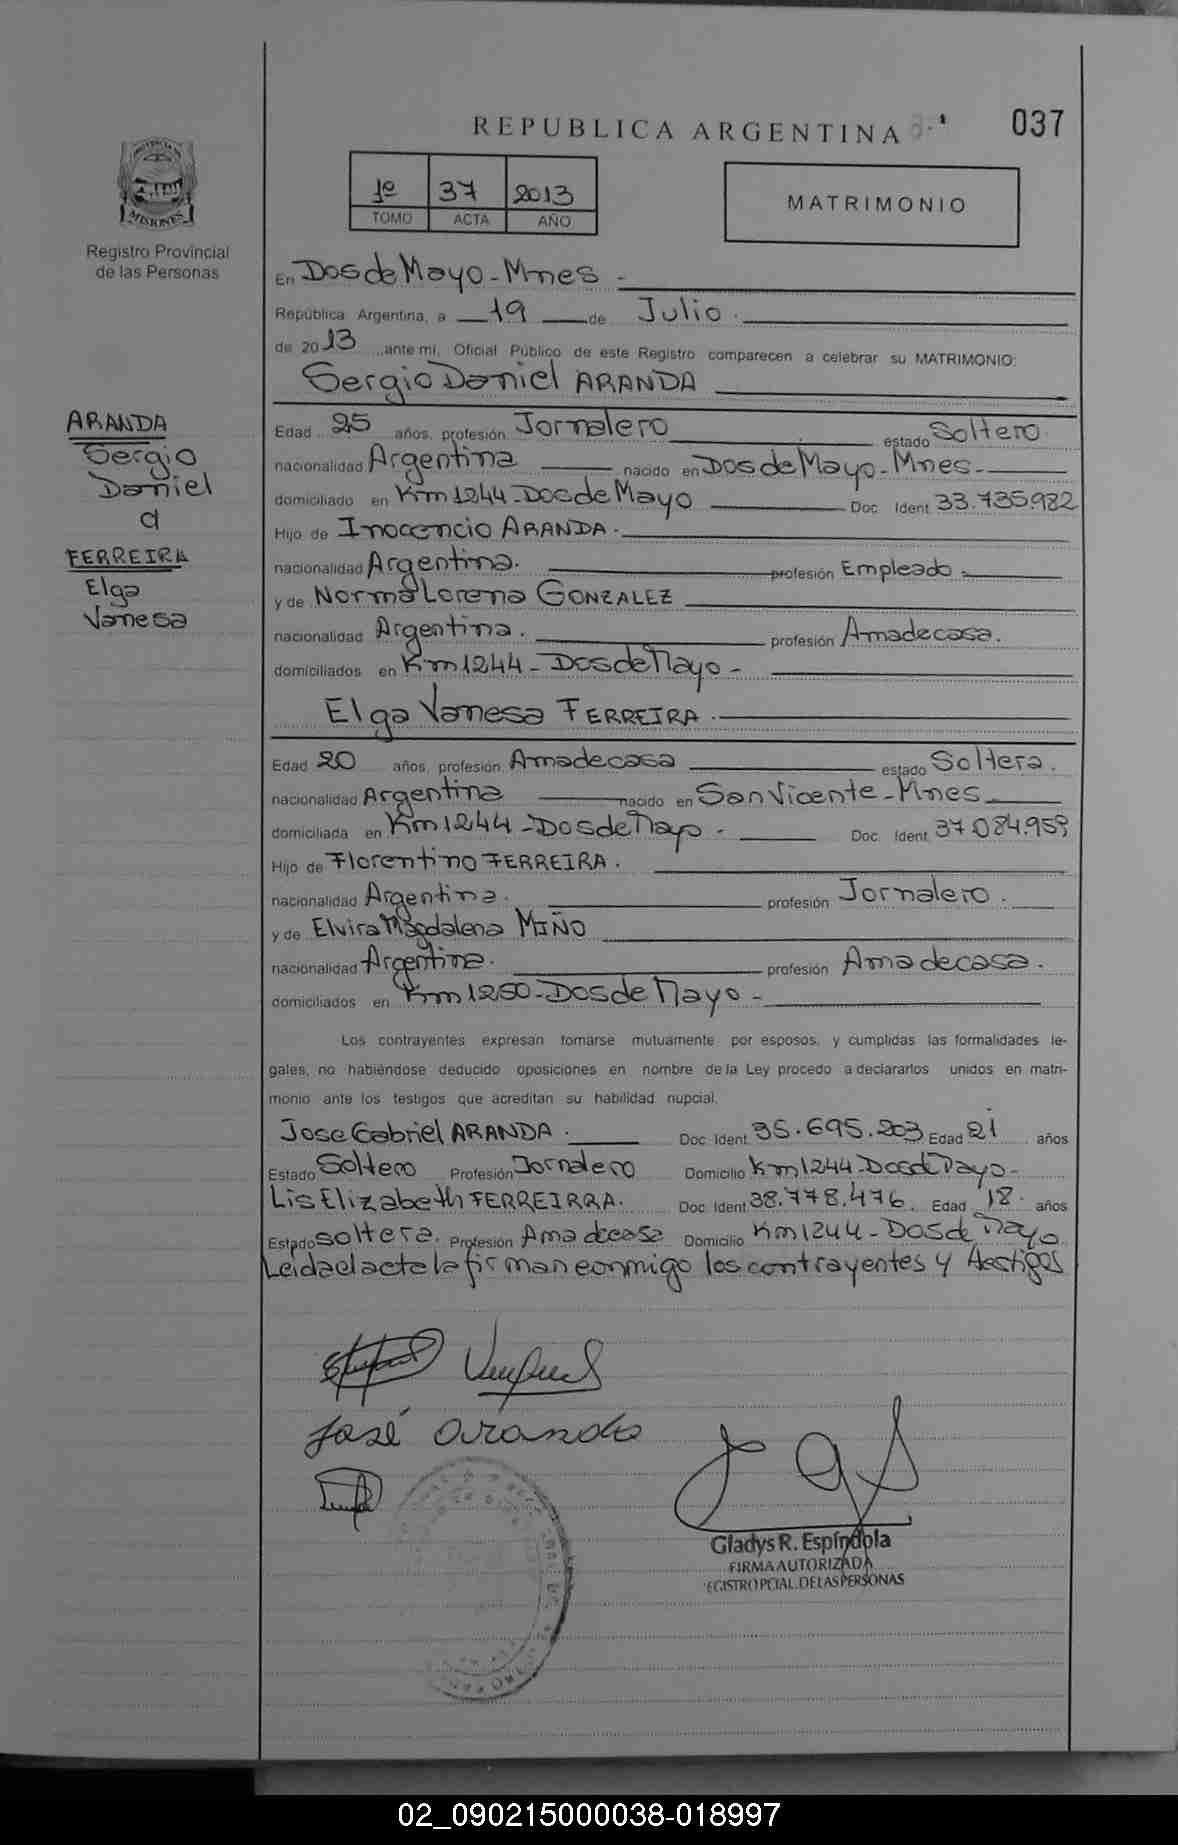 REPUBLICA ARGENTINA
037
1º 37 2013
TOMO ACTA AÑO
MATRIMONIO
PROVINCIA DE
MISIONES
Registro Provincial
de las Personas
En Dos de Mayo - Mnes -
República Argentina, a 19 de Julio.
de 2013 ante mi, Oficial Público de este Registro comparecen a celebrar su MATRIMONIO:
Sergio Daniel ARANDA
ARANDA
Sergio
Daniel
FERREIRA
Elga
Vanesa
Edad 25 años, profesión Jornalero estado Soltero.
nacionalidad Argentina nacido en Dos de Mayo - Mnes -
domiciliado en Km 1244 - Dos de Mayo Doc Ident 33.735.982
Hijo de Inocencio ARANDA.
nacionalidad Argentina. profesión Empleado.
y de Norma Lorena GONZALEZ
nacionalidad Argentina. profesión Ama de casa.
domiciliados en Km 1244 - Dos de Mayo -
Elga Vanesa FERREIRA.
Edad 20 años, profesión Ama de casa estado Soltera.
nacionalidad Argentina nacido en San Vicente - Mnes
domiciliada en Km 1244 - Dos de Mayo - Doc Ident 37.084.959
Hijo de Florentino FERREIRA.
nacionalidad Argentina. profesión Jornalero.
y de Elvira Magdalena MIÑO
nacionalidad Argentina. profesión Ama de casa.
domiciliados en Km 1250 - Dos de Mayo -
Los contrayentes expresan tomarse mutuamente por esposos, y cumplidas las formalidades le-
gales, no habiéndose deducido oposiciones en nombre de la Ley procedo a declararlos unidos en matri-
monio ante los testigos que acreditan su habilidad nupcial.
Jose Gabriel ARANDA. Doc Ident 35.695.203 Edad 21 años
Estado Soltero Profesión Jornalero Domicilio Km 1244 - Dos de Mayo -
Lis Elizabeth FERREIRRA. Doc Ident 38.778.476. Edad 18. años
Estado soltera. Profesión Ama de casa Domicilio Km 1244 - Dos de Mayo
Leida el acta la firman conmigo los contrayentes y testigos
José Aranda
Gladys R. Espíndola
FIRMA AUTORIZADA
EGISTRO PCIAL. DE LAS PERSONAS
02_090215000038-018997